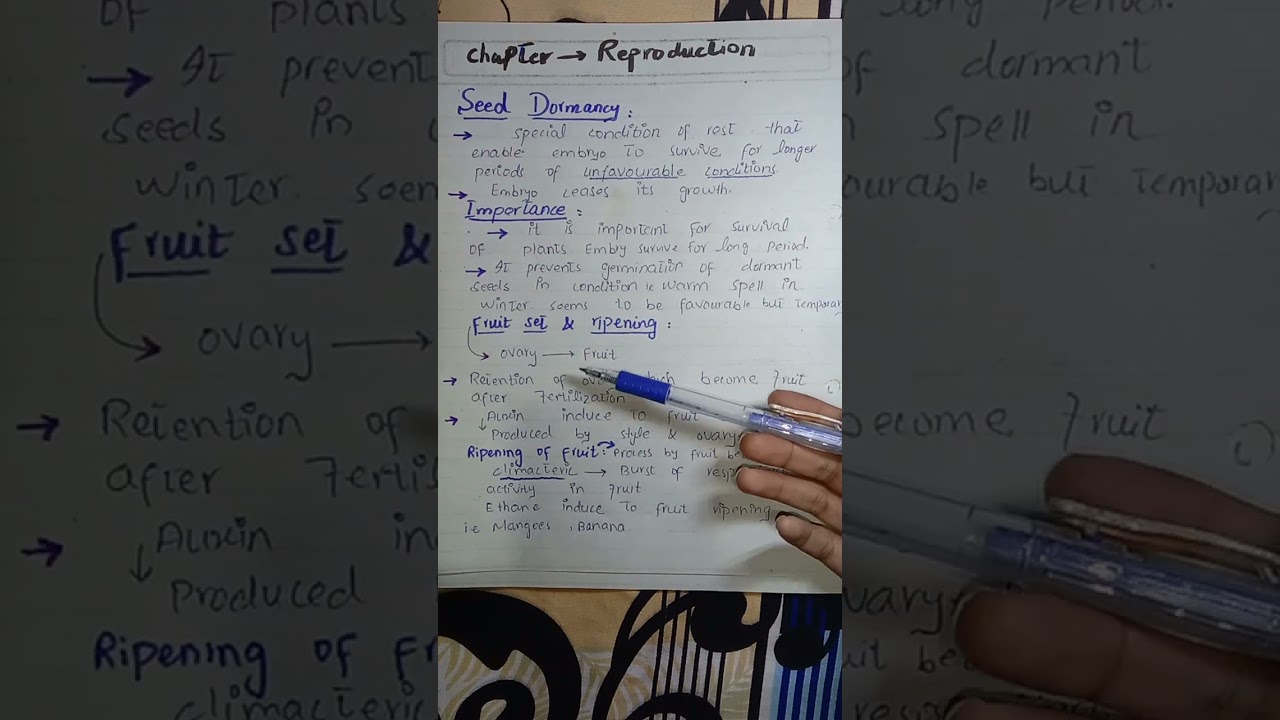 chapter → Reproduction
Seed Dormancy :
→ special condition of rest that
enable embryo to survive for longer
periods of unfavourable conditions
→ Embryo ceases its growth.
Importance :
→ it is important for survival
of plants Emby survive for long period.
→ It prevents germination of dormant
seeds in condition i.e warm spell in
winter seems to be favourable but temporar
Fruit set & ripening :
ovary → Fruit
→ Retention of become fruit
after fertilization
→ Auxin induce to fruit
↓ Produced by style & ovary
Ripening of fruit: → Process by fruit be
climacteric → Burst of
activity in fruit
Ethane induce to fruit ripening
i.e Mangoes , Banana